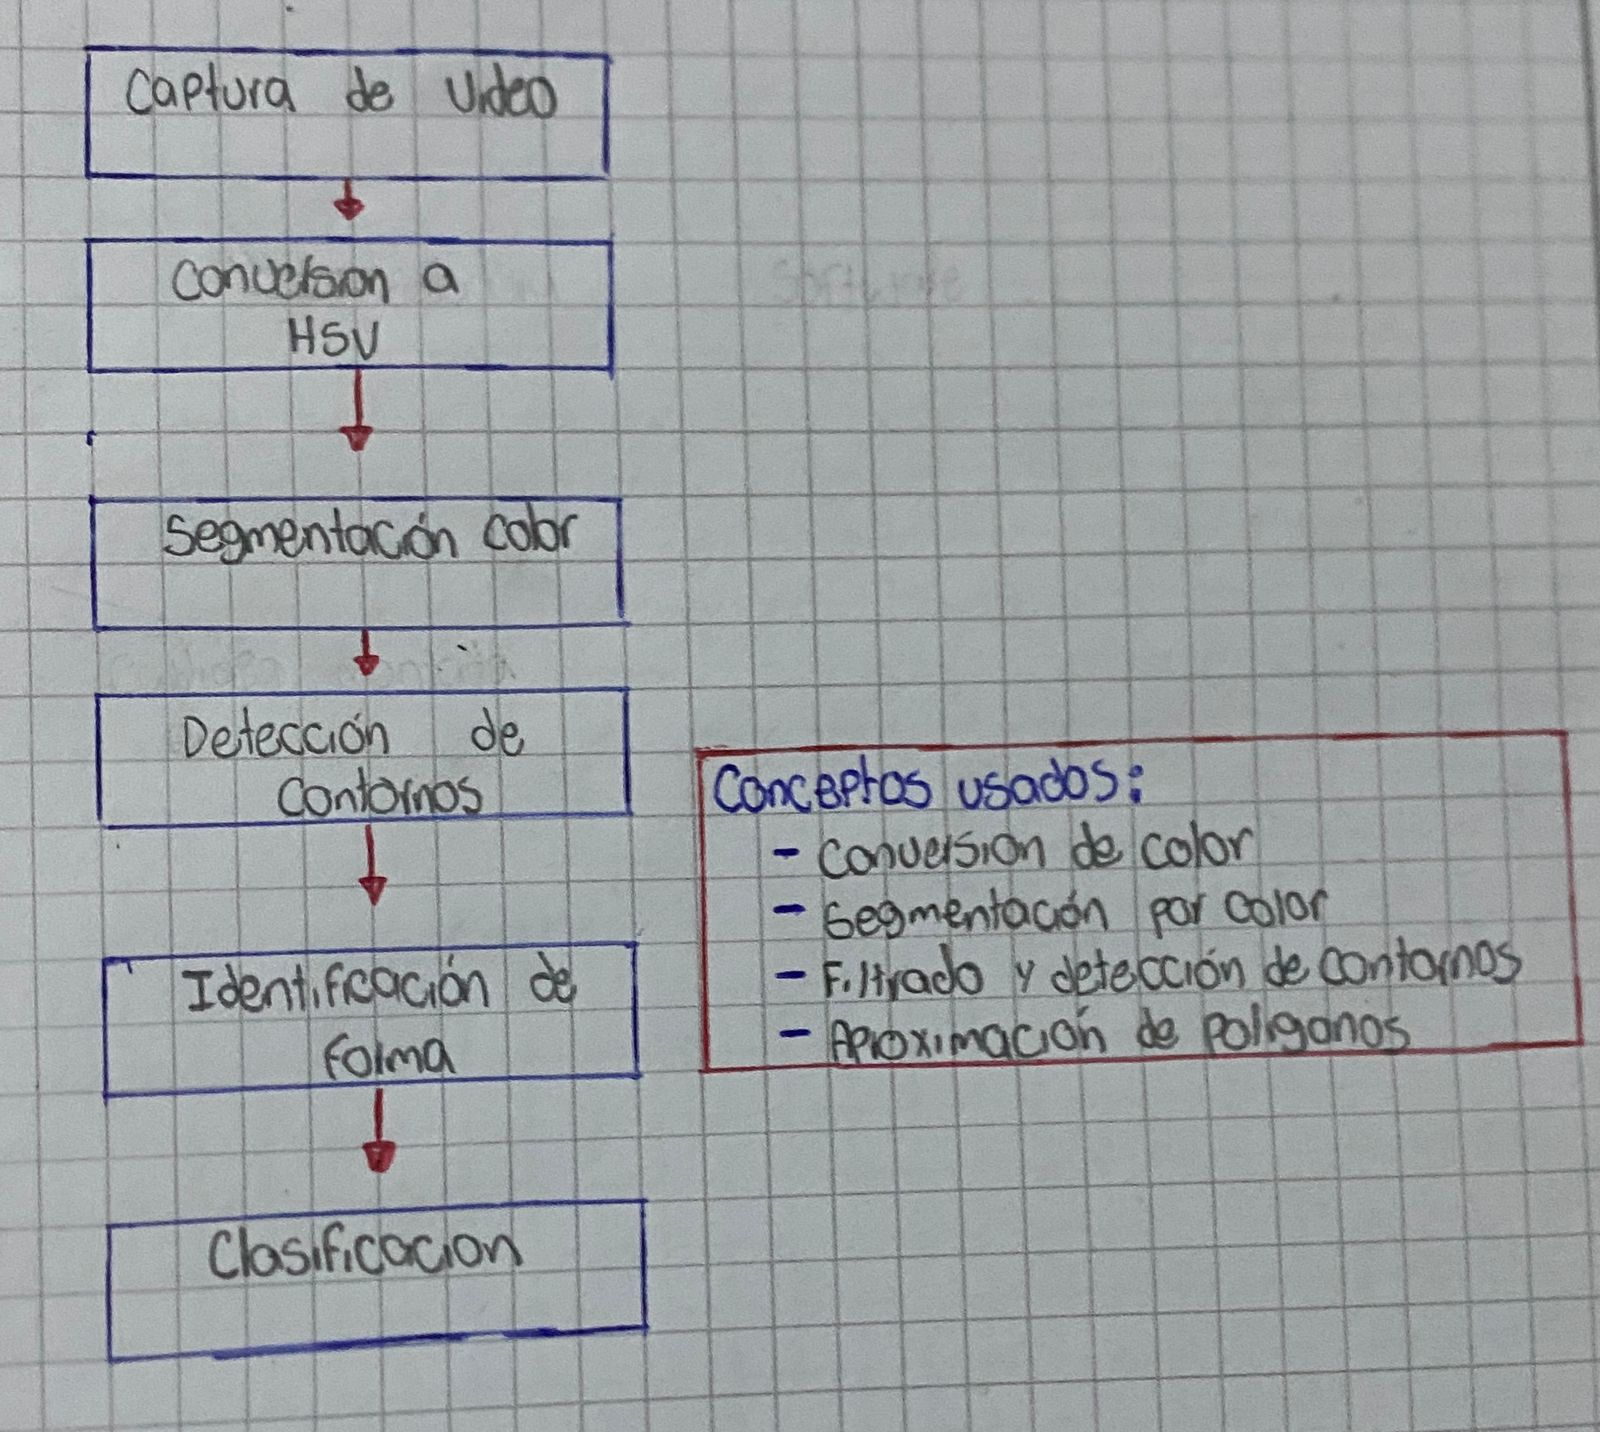 Captura de video
Conversion a
HSV
Segmentación color
Detección de
contornos
Identificación de
forma
Clasificacion
Conceptos usados:
- Conversion de color
- Segmentación por color
- Filtrado y detección de contornos
- Aproximación de poligonos